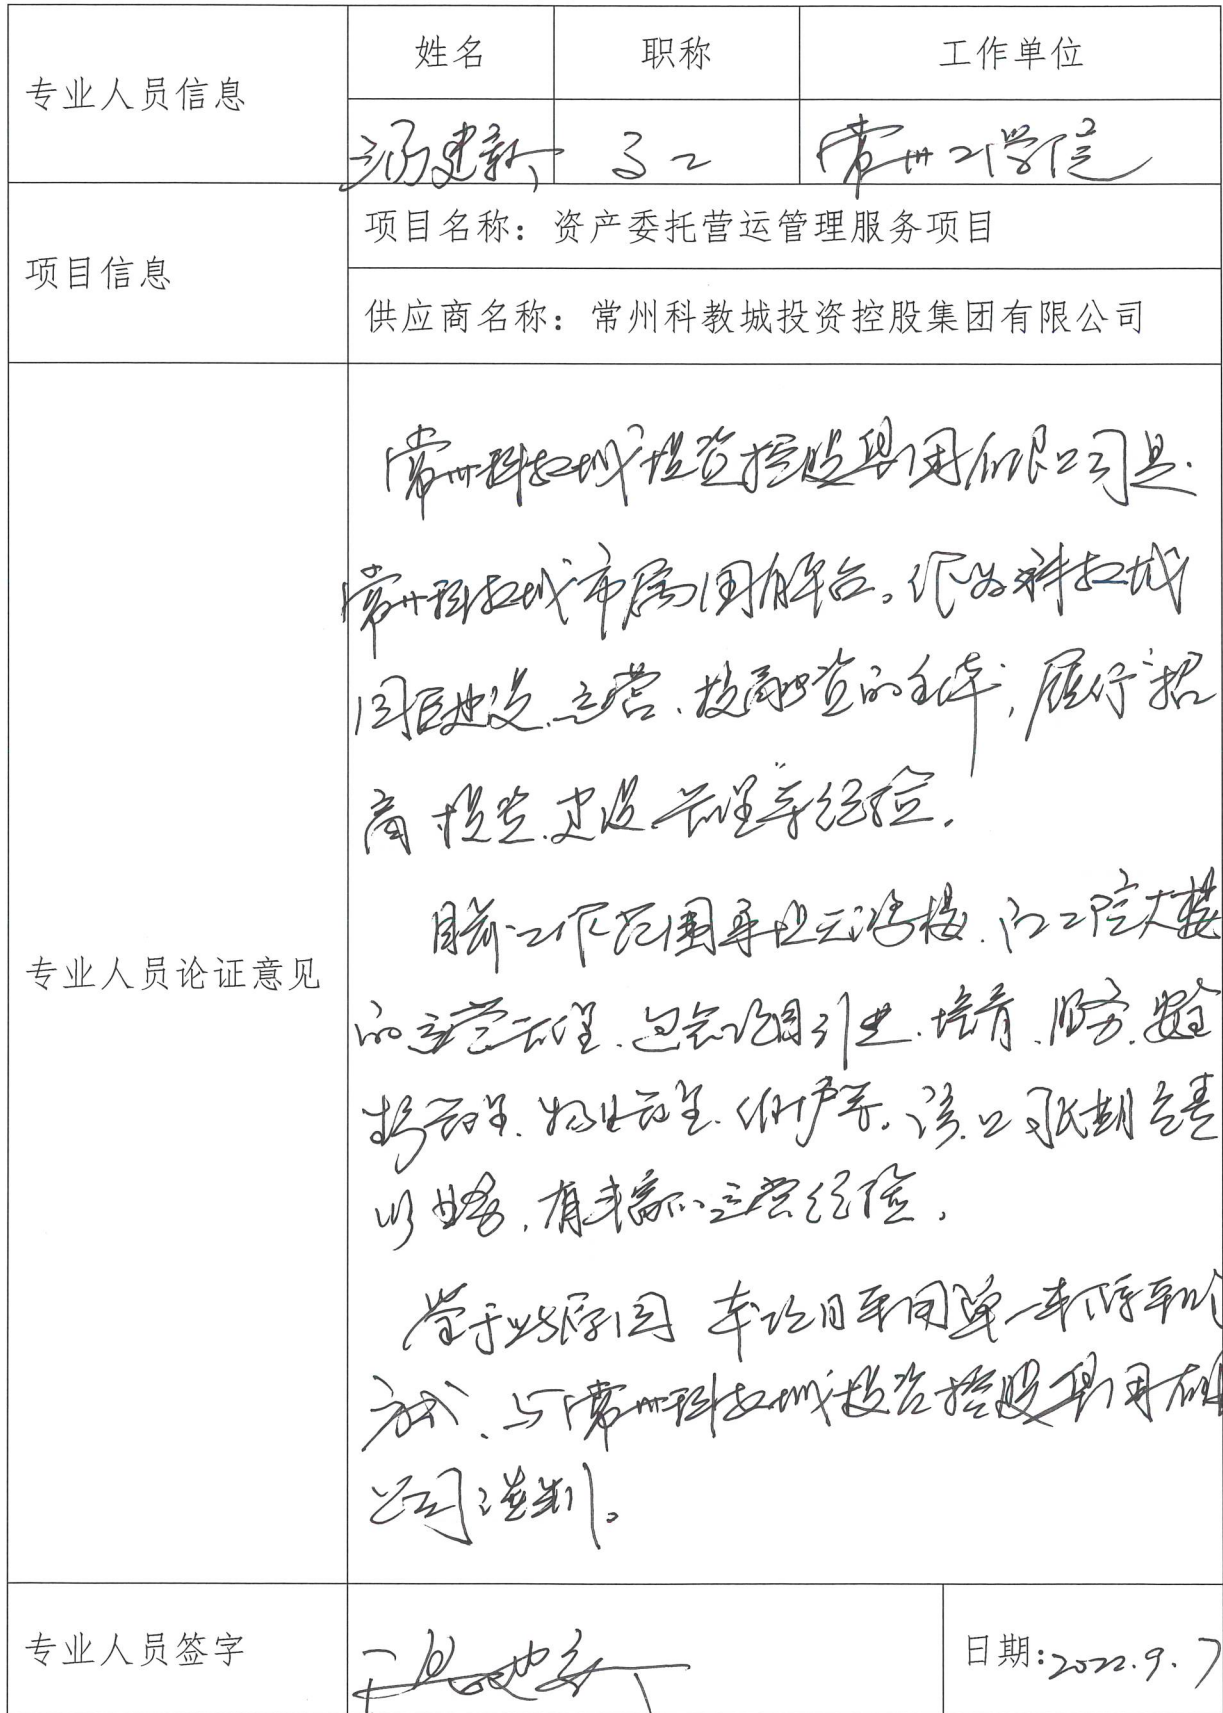 专业人员信息
姓名 职称 工作单位
建新 高工 常州工学院
项目信息
项目名称：资产委托营运管理服务项目
供应商名称：常州科教城投资控股集团有限公司
专业人员论证意见
常州科教城投资控股集团有限公司是
常州科教城市属国有平台。作为科教城
园区建设、运营、投融资的主体，履行招
商、投资、建设、管理等经验。
目前工作范围 楼、 大楼
的运营管理、包含项目引进、培育、服务、安全
管理、物业管理、维护等。该公司长期负责
业务，有丰富的运营经验。
鉴于此原因 本项目采用单一来源采购
方式、与常州科教城投资控股集团有限
公司谈判。
专业人员签字
日期:2022.9.7